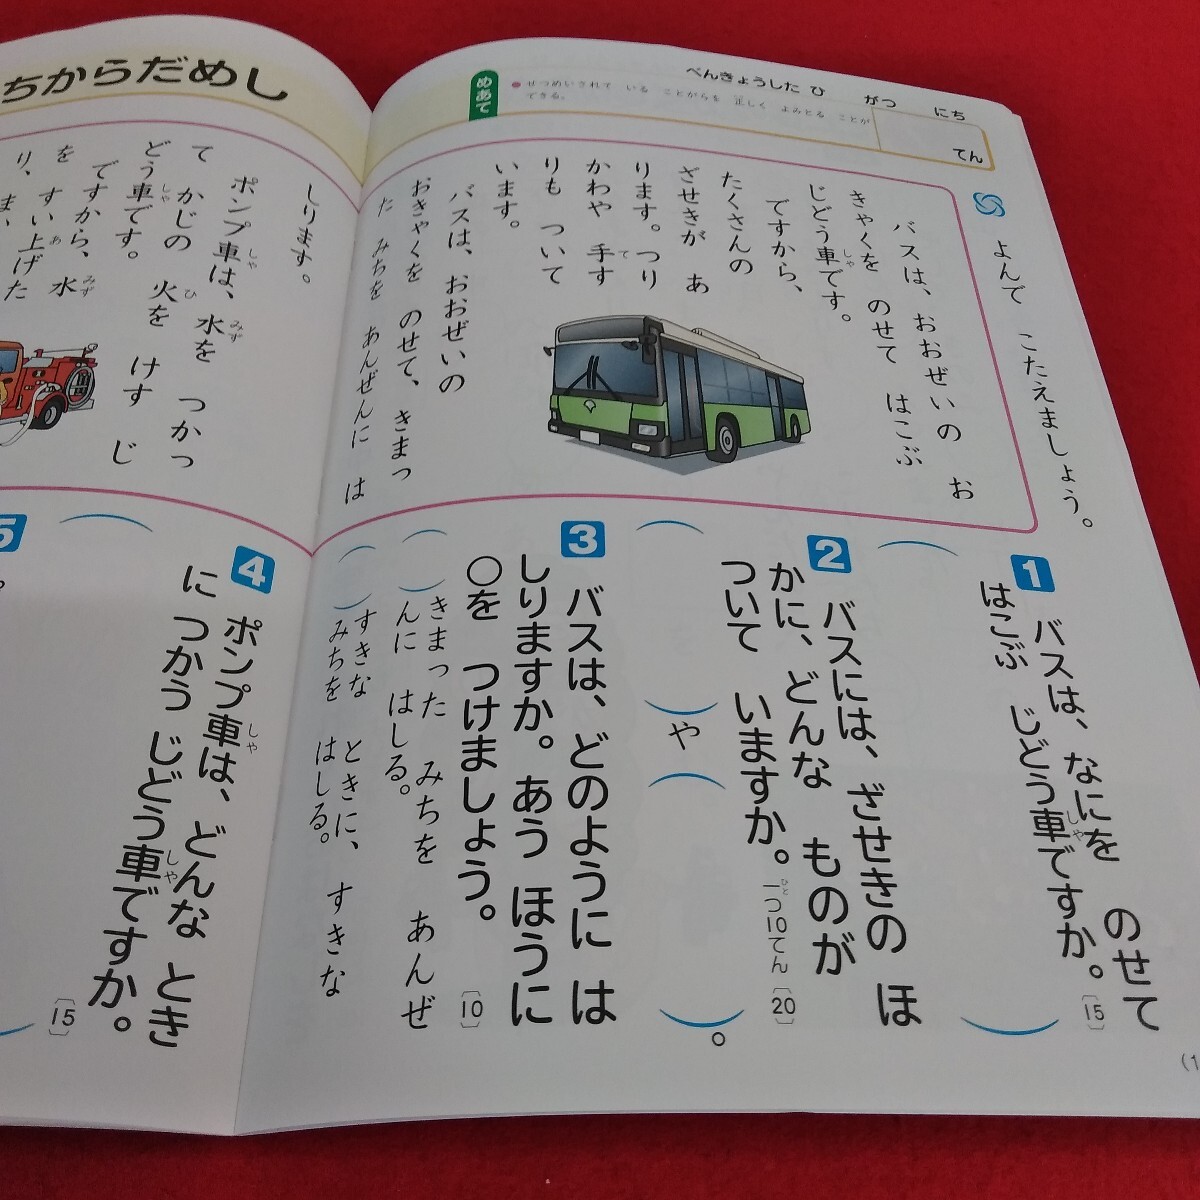 ちからだめし
べんきょうした ひ がつ にち
てん
めあて
●せつめいされて いる ことがらを 正しく よみとる ことが
できる。
よんで こたえましょう。
バスは、おおぜいの お
きゃくを のせて はこぶ
じどう車です。
しゃ
ですから、
たくさんの
ざせきが あ
ります。つり
かわや 手す
て
りも ついて
います。
バスは、おおぜいの
おきゃくを のせて、きまっ
た みちを あんぜんに は
しります。
ポンプ車は、水を つかっ
しゃ みず
て かじの 火を けす じ
ひ
どう車です。
しゃ
ですから、水
みず
を すい上げた
あ
り、ま
1 バスは、なにを のせて
はこぶ じどう車ですか。
しゃ
〔15〕
2 バスには、ざせきの ほ
かに、どんな ものが
ついて いますか。
一つ10てん
ひと
〔20〕
や
。
3 バスは、どのように は
しりますか。あう ほうに
○を つけましょう。
〔10〕
きまった みちを あんぜ
んに はしる。
すきな ときに、すきな
みちを はしる。
4 ポンプ車は、どんな とき
しゃ
に つかう じどう車ですか。
しゃ
〔15〕
5